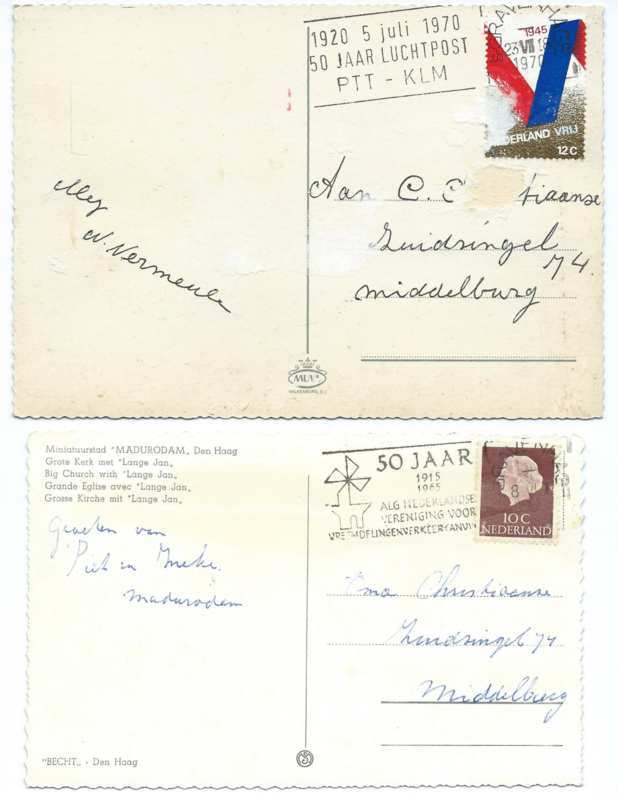 1920 5 juli 1970
50 JAAR LUCHTPOST
PTT - KLM
'S GRAVENHA
23 VII 18
1970
1945
NEDERLAND VRIJ
12 C
Aan C. C tiaanse
Zuidsingel
74.
Middelburg
Mej
N. Vermeule
MUVA
VALKENBURG, Z.H.
Miniatuurstad "MADURODAM„ Den Haag
Grote Kerk met "Lange Jan„
Big Church with "Lange Jan„
Grande Eglise avec "Lange Jan„
Grosse Kirche mit "Lange Jan„
50 JAAR
1915
1965
ALG NEDERLANDSE
VERENIGING VOOR
VREEMDELINGENVERKEER (ANVV
10 C
NEDERLAND
Groeten van
Piet en Ineke.
Madurodam
Oma Christiaanse
Zuidsingel 74
Middelburg
"BECHT„ - Den Haag